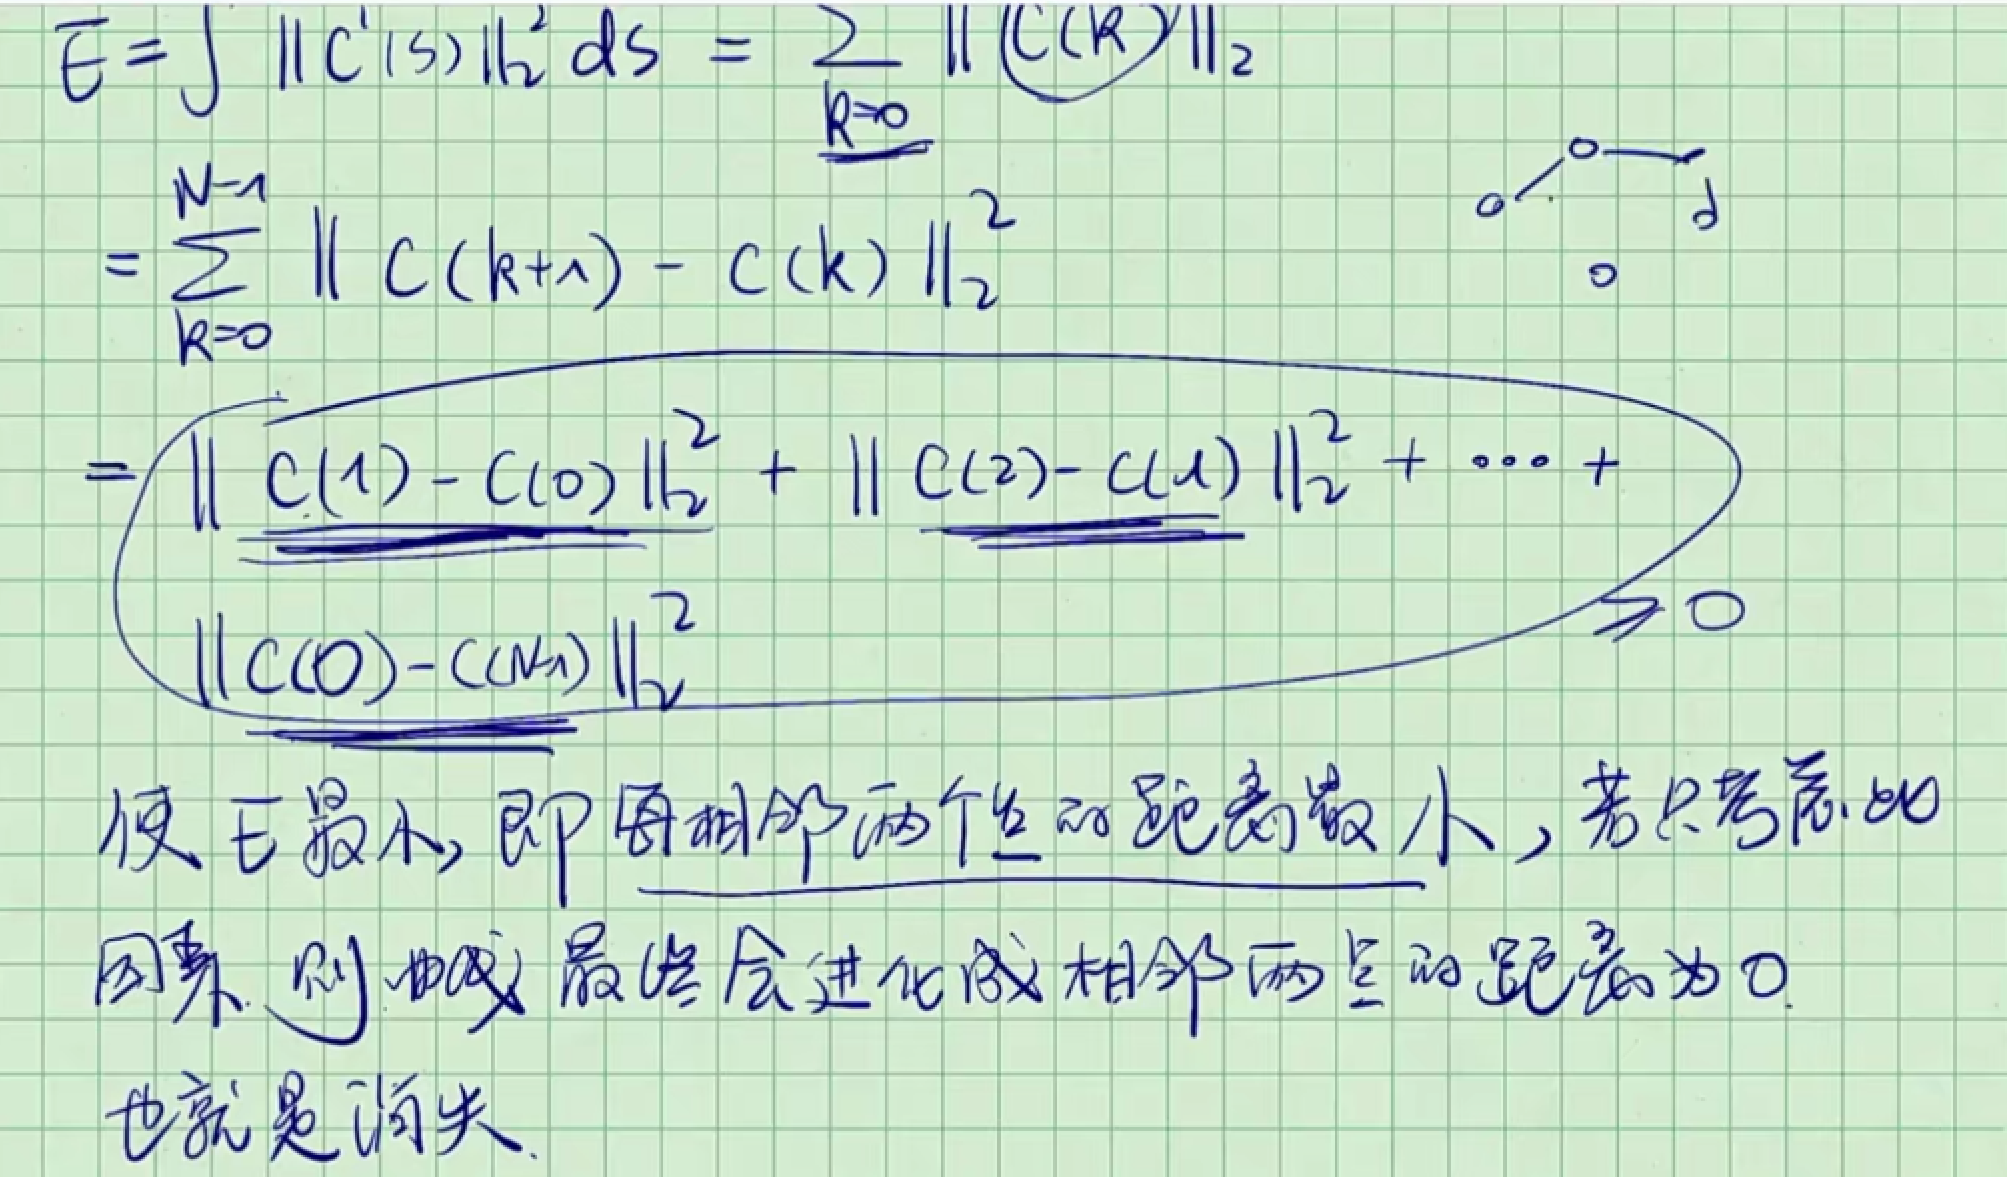 E = ∫ ‖C'(s)‖₂² ds = ∑_{k=0} ‖C(k)‖₂
= ∑_{k=0}^{N-1} ‖ C(k+1) - C(k) ‖₂²
= ‖ C(1) - C(0) ‖₂² + ‖ C(2) - C(1) ‖₂² + ⋯ +
‖ C(0) - C(N-1) ‖₂² ≥ 0
使 E 最小, 即每相邻两个点的距离最小, 若只考虑此
因素, 则曲线最终会进化成相邻两点的距离为0.
也就是消失.